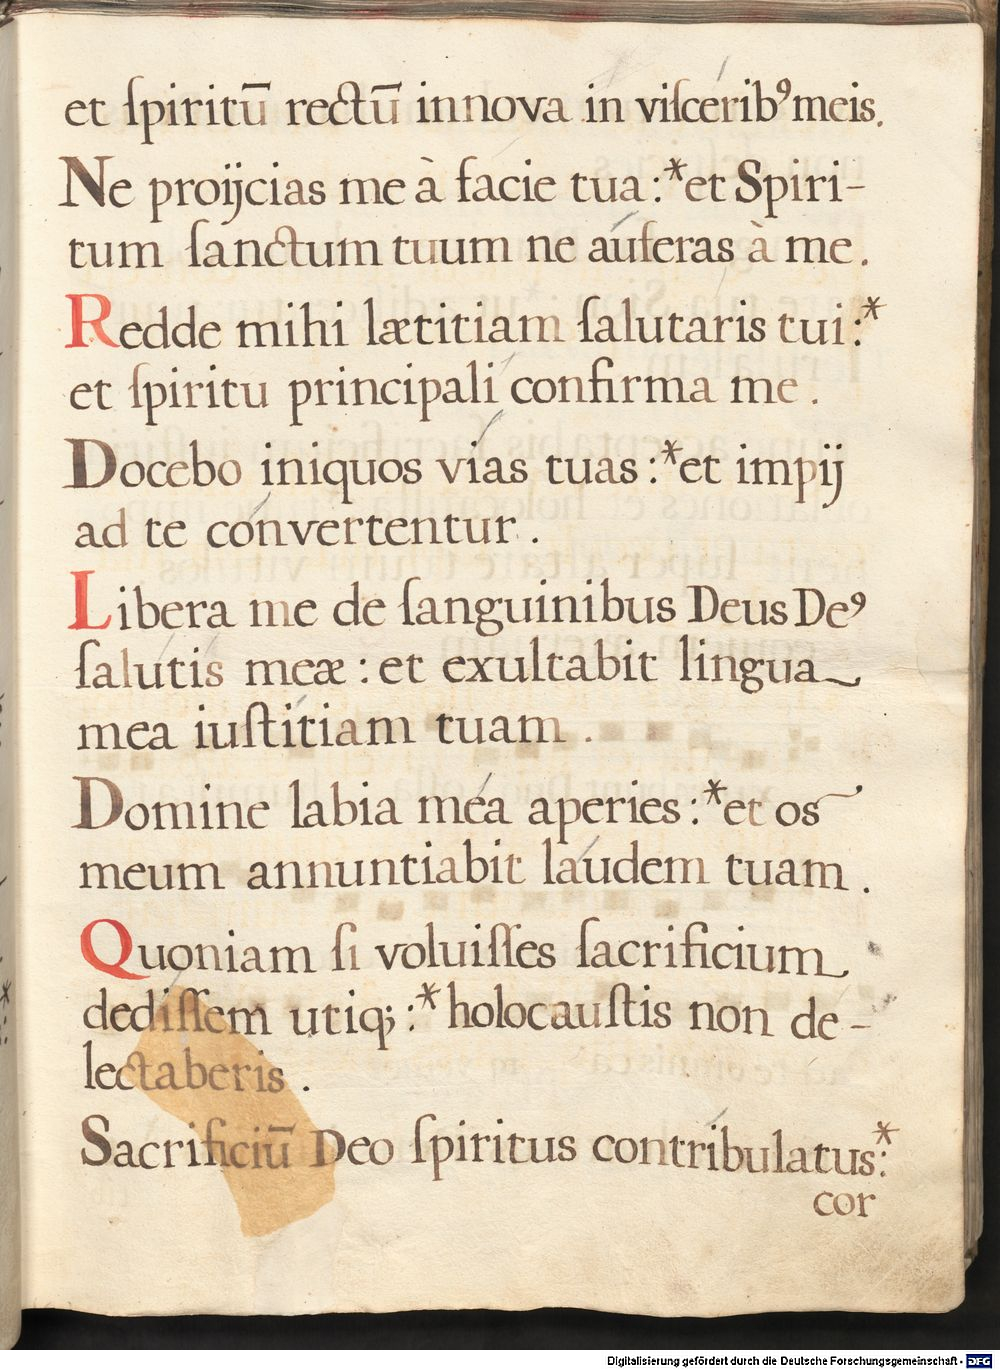 et ſpiritū rectū innova in viſcerib⁹ meis.
Ne proijcias me à facie tua :* et Spiri-
tum ſanctum tuum ne auferas à me .
Redde mihi lætitiam ſalutaris tui :*
et ſpiritu principali confirma me .
Docebo iniquos vias tuas :* et impij
ad te convertentur .
Libera me de ſanguinibus Deus De⁹
ſalutis meæ : et exultabit lingua
mea iuſtitiam tuam .
Domine labia mea aperies :* et os
meum annuntiabit laudem tuam .
Quoniam ſi voluiſſes ſacrificium
dediſſem utiq; :* holocauſtis non de-
lectaberis .
Sacrificiū Deo ſpiritus contribulatus :*
cor
Digitalisierung gefördert durch die Deutsche Forschungsgemeinschaft - DFG